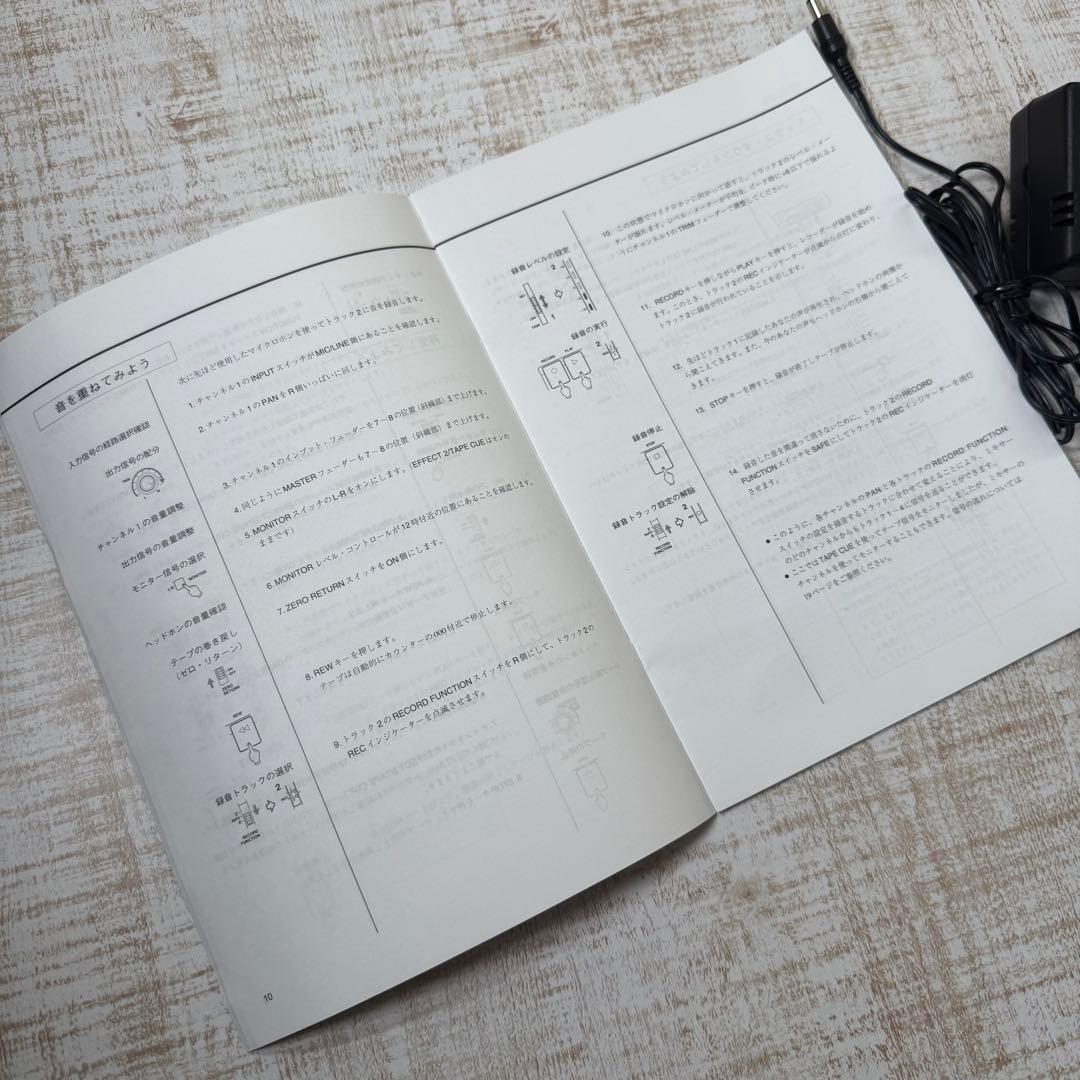 音を重ねてみよう
次に先ほど使用したマイクロホンを使ってトラック2に音を録音します。
入力信号の経路選択確認
1. チャンネル1のINPUTスイッチがMIC/LINE側にあることを確認します。
出力信号の配分
2. チャンネル1のPANをR側いっぱいに回します。
PAN
チャンネル1の音量調整
3. チャンネル1のインプット・フェーダーを7〜8の位置(斜線部)まで上げます。
出力信号の音量調整
4. 同じようにMASTERフェーダーも7〜8の位置(斜線部)まで上げます。
モニター信号の選択
MONITOR
5. MONITORスイッチのL-Rをオンにします。(EFFECT 2/TAPE CUEはオンの
ままです)
ヘッドホンの音量確認
6. MONITORレベル・コントロールが12時付近の位置にあることを確認します。
テープの巻き戻し
(ゼロ・リターン)
ON
OFF
ZERO
RETURN
7. ZERO RETURNスイッチをON側にします。
REW
8. REWキーを押します。
テープは自動的にカウンターの000付近で停止します。
録音トラックの選択
2
SAFE
R
REC
RECORD
FUNCTION
9. トラック2のRECORD FUNCTIONスイッチをR側にして、トラック2の
RECインジケーターを点滅させます。
10
録音レベルの設定
2
TRIM
1
10. この状態でマイクロホンに向かって話すと、トラック2のレベル・メー
ターが振れます。レベル・メーターが平均0、ピーク時に+6以下で振れるよ
うにチャンネル1のTRIMフェーダーで調整してください。
録音の実行
RECORD
PLAY
2
11. RECORDキーを押しながらPLAYキーを押すと、レコーダーが録音を始め
ます。このとき、トラック2のRECインジケーターが点滅から点灯に変わり、
トラック2に録音が行われていることを示します。
12. 先ほどトラック1に記録したあなたの声が再生され、ヘッドホンの両側か
ら聞こえてきます。また、今のあなたの声もヘッドホンの右側から聞こえて
きます。
録音停止
STOP
13. STOPキーを押すと、録音が終了しテープが停止します。
録音トラック設定の解除
2
RECORD
FUNCTION
14. 録音した音を間違って消さないために、トラック2のRECORD
FUNCTIONスイッチをSAFEにしてトラック2のRECインジケーターを消灯
させます。
● このように、各チャンネルのPANと各トラックのRECORD FUNCTION
スイッチの設定を録音するトラックに合わせて変えることにより、ミキサー
のどのチャンネルからもトラック1〜4に信号を送ることができます。
● ここではTAPE CUEを使ってテープ信号をモニターしましたが、ミキサーの
チャンネルを使ってモニターすることもできます。信号の流れについては
19ページをご参照ください。